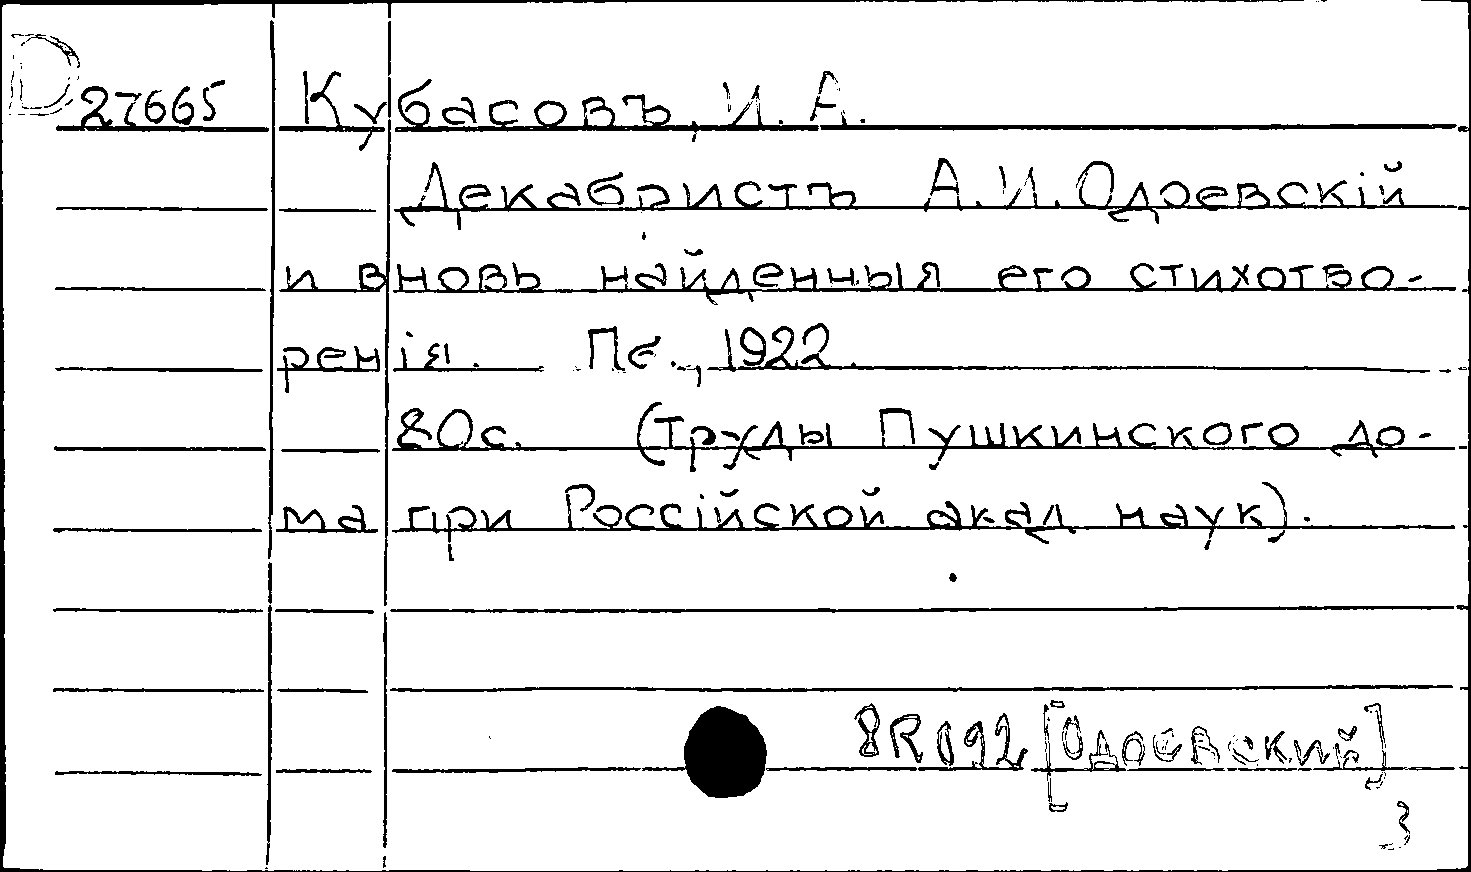 D 27665 Кубасовъ, И. А.
Декабристъ А. И. Одоевскій
и вновь найденныя его стихотво-
ренія. Пб., 1922.
80с. (Труды Пушкинского до-
ма при Россійской акад наук).
8R092 [Одоевский]
3